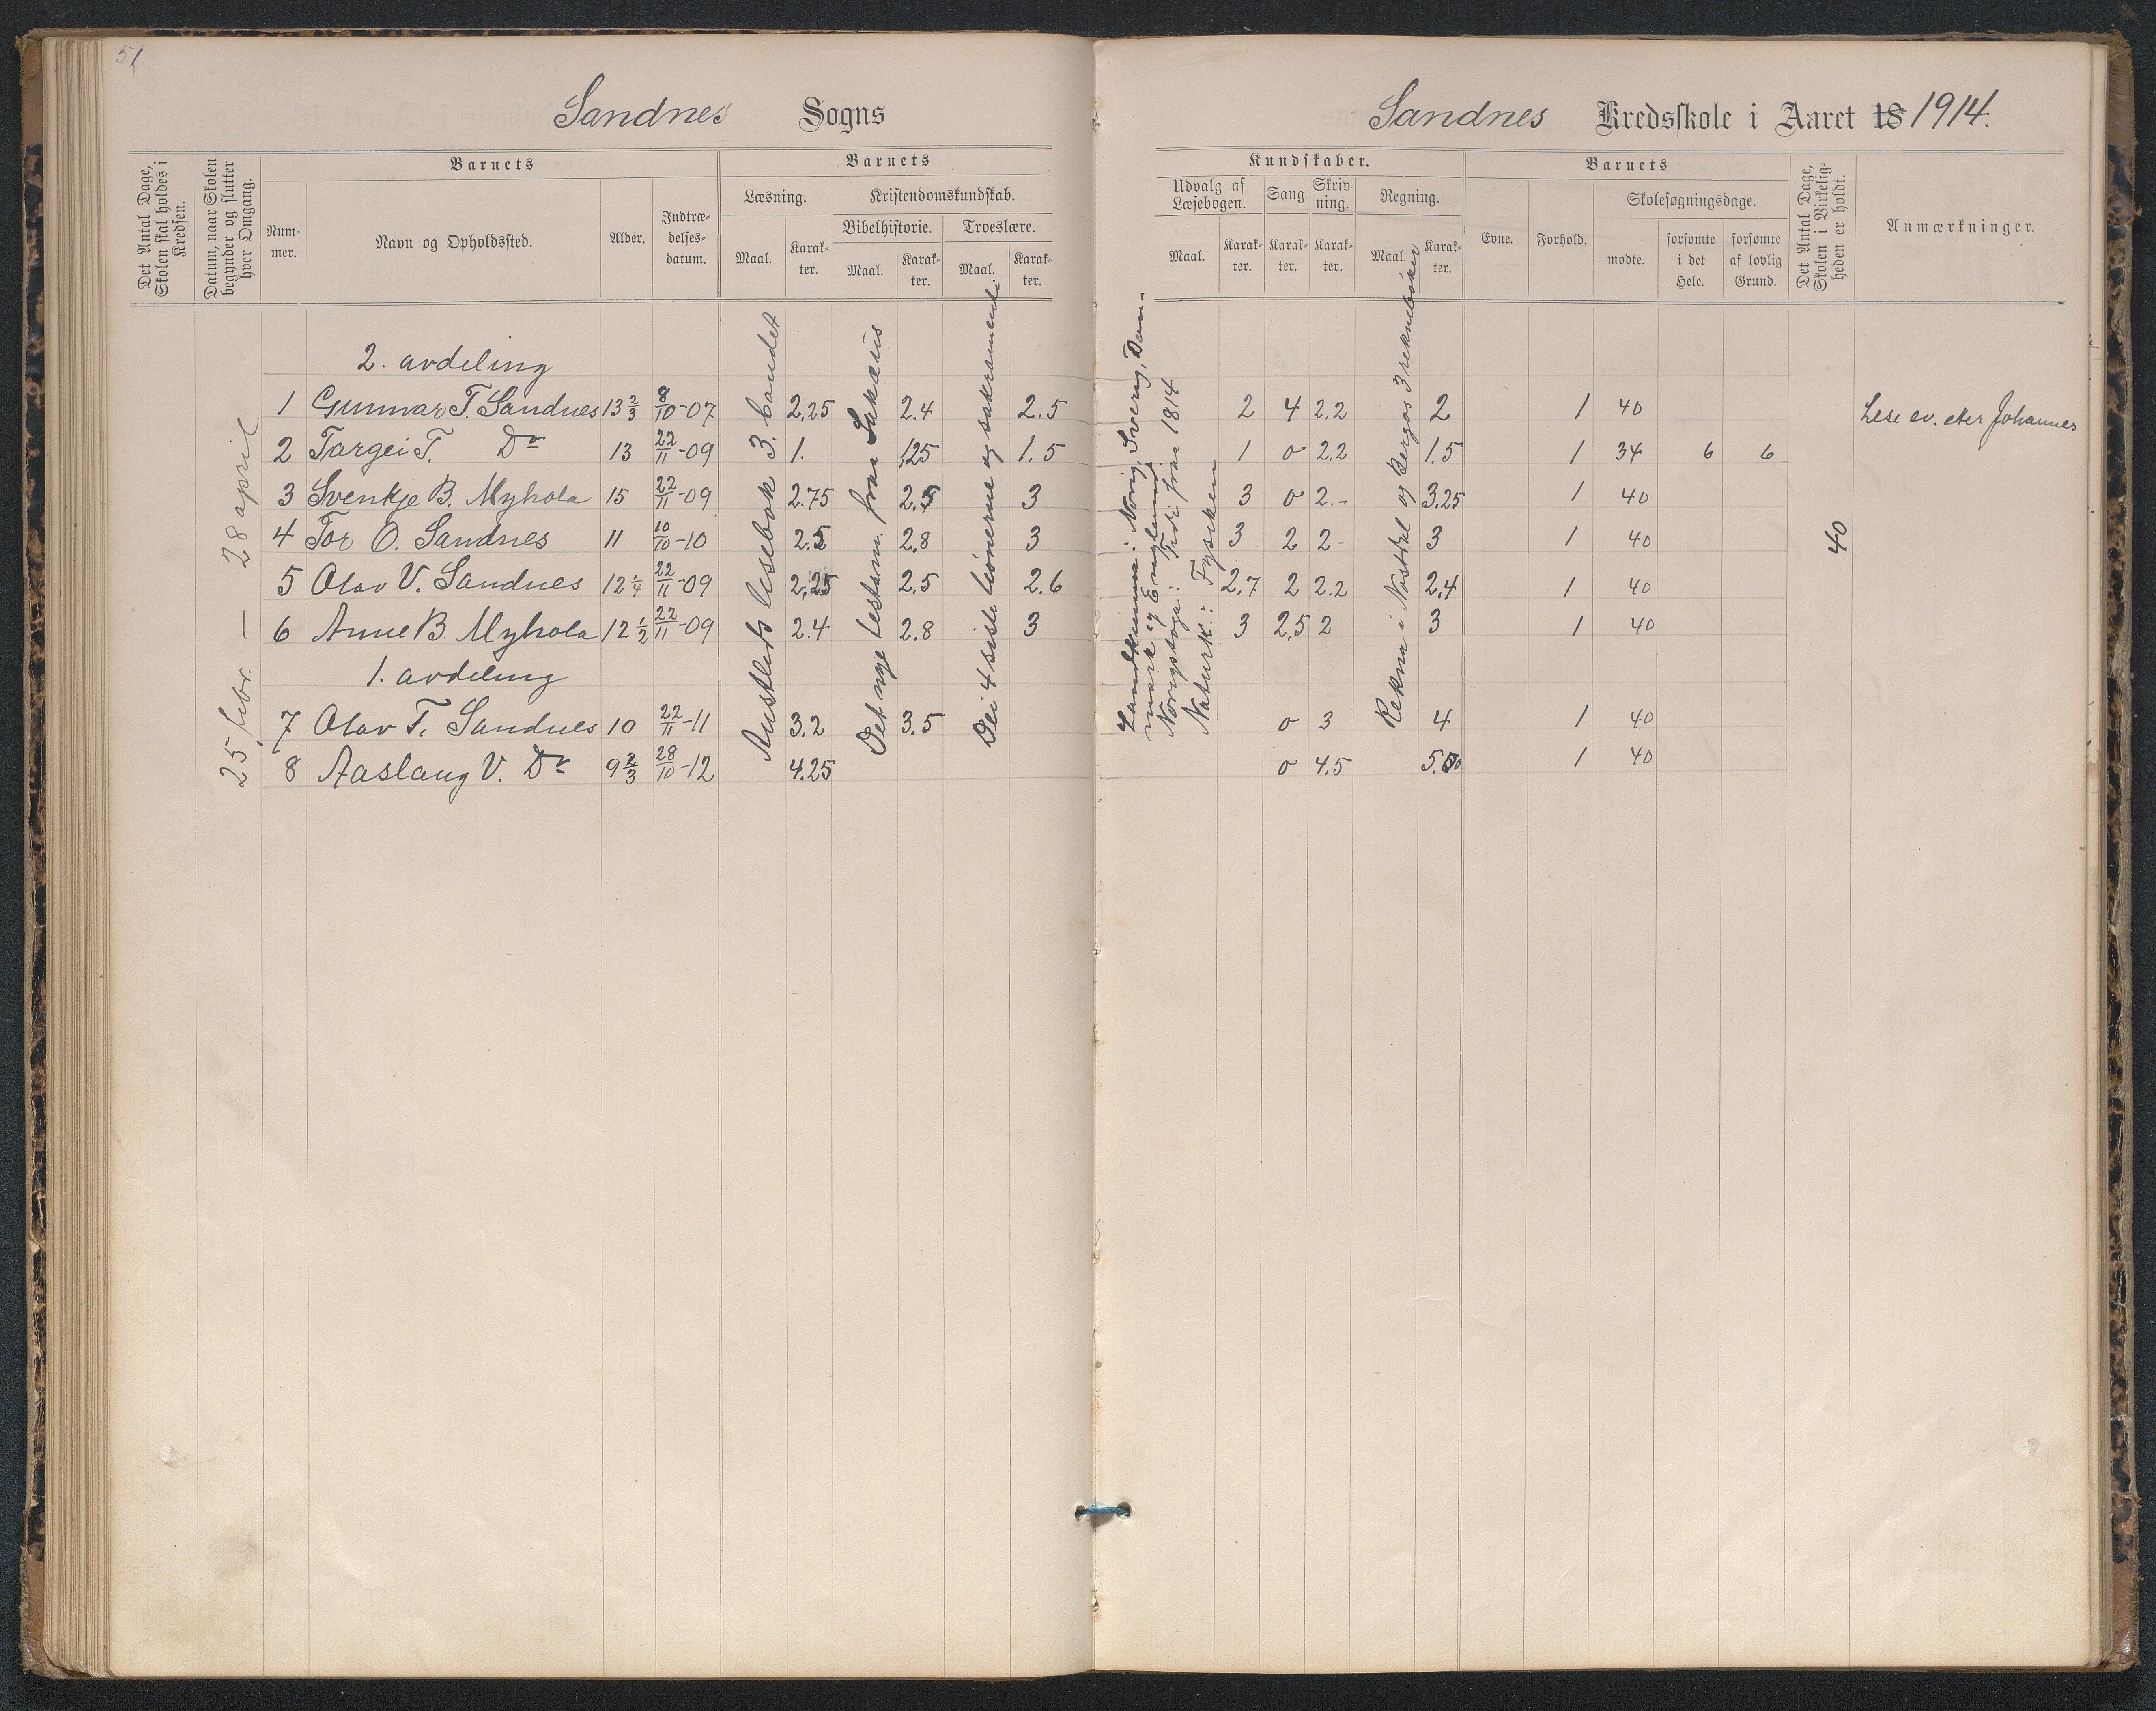 51.
Sandnes Sogns
Det Antal Dage, Skolen skal holdes i Kredsen.
Datum, naar Skolen begynder og slutter hver Omgang.
Barnets
Nummer.
Navn og Opholdssted.
Alder.
Indtrædelsesdatum.
Barnets
Læsning.
Maal.
Karakter.
Kristendomskundskab.
Bibelhistorie.
Maal.
Karakter.
Troeslære.
Maal.
Karakter.
25 febr. — 28 april
2. avdeling
1 Gunnar T. Sandnes 13 2/3 8/10-07 2,25 2.4 2.5
2 Targei T. Do 13 22/11-09 1. 1,25 1.5
3 Svenkje B. Myhola 15 22/11-09 2.75 2.5 3
4 Tor O. Sandnes 11 10/10-10 2.5 2.8 3
5 Olav V. Sandnes 12 1/4 22/11-09 2,25 2.5 2.6
6 Anne B. Myhola 12 1/2 22/11-09 2.4 2.8 3
1. avdeling
7 Olav T. Sandnes 10 22/11-11 3.2 3.5
8 Aaslaug V. Do 9 2/3 28/10-12 4.25
Austlids lesebok 3. bandet
Det nye testam. fraa Sakæus
Dei 4 siste bönerne og sakramenti
Sandnes Kredsskole i Aaret 18 1914.
Kundskaber.
Udvalg af Læsebogen.
Maal.
Karakter.
Sang.
Karakter.
Skrivning.
Karakter.
Regning.
Maal.
Karakter.
Barnets
Evne.
Forhold.
Skolesøgningsdage.
mødte.
forsømte i det Hele.
forsømte af lovlig Grund.
Det Antal Dage, Skolen i Virkeligheden er holdt.
Anmærkninger.
Landkunna: Norig, Sverig, Danmark og England
Norigssoga: Tidi fraa 1814
Naturk.: Fysiken
Rekna i Nast og Bergos 3 reknebøker
2 4 2.2 2 1 40 Lese ev. eter Johannes
1 0 2.2 1.5 1 34 6 6
3 0 2.- 3.25 1 40
3 2 2- 3 1 40
2.7 2 2.2 2.4 1 40
3 2,5 2 3 1 40
0 3 4 1 40
0 4.5 5.50 1 40
40